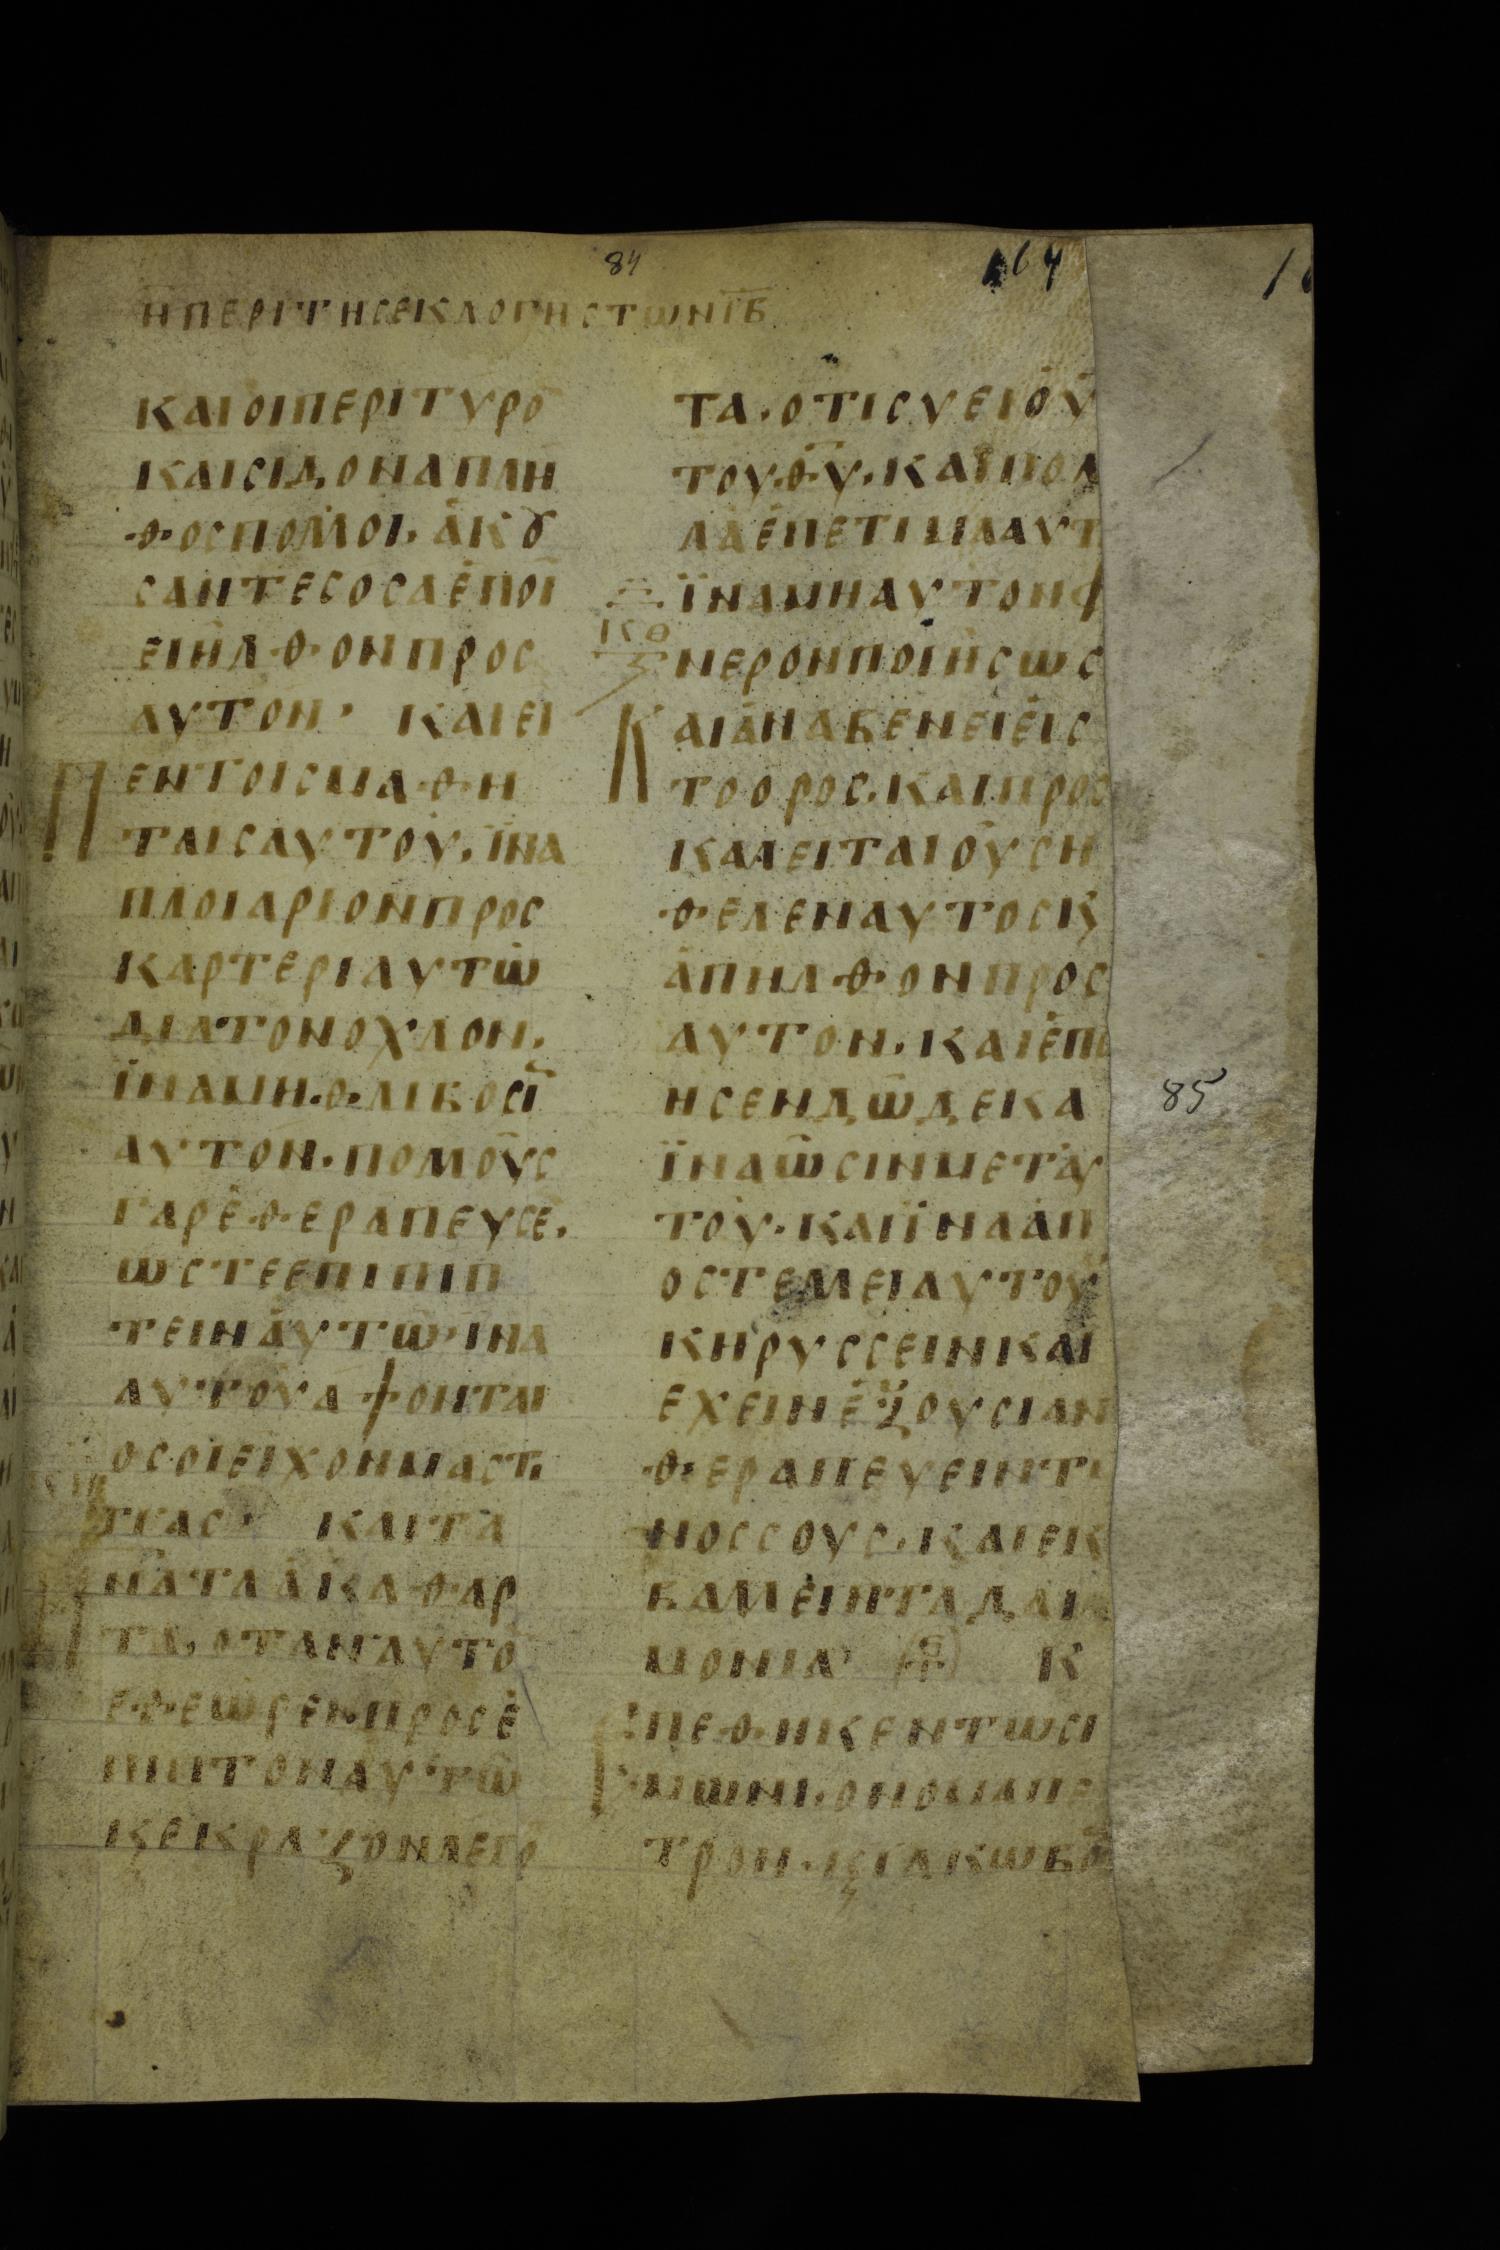 84
164
Η ΠΕΡΙ ΤΗC ΕΚΛΟΓΗC ΤѠΝ ΙΒ
ΚΑΙΟΙΠΕΡΙΤΥΡΟ̅
ΚΑΙCΙΔΟΝΑΠΛΗ
ΘΟCΠΟΛΛΟΙ. ΑΚȢ
CΑΝΤΕCΟCΑΕΠΟΙ
ΕΙΗΛΘΟΝΠΡΟC
ΑΥΤΟΝ· ΚΑΙΕΙ
ΠΕΝΤΟΙCΜΑΘΗ
ΤΑΙCΑΥΤΟΥ. ΪΝΑ
ΠΛΟΙΑΡΙΟΝΠΡΟC
ΚΑΡΤΕΡΙΑΥΤѠ
ΔΙΑΤΟΝΟΧΛΟΝ.
ΪΝΑΜΗΘΛΙΒΟCΙ
ΑΥΤΟΝ. ΠΟΛΛΟΥC
ΓΑΡΕΘΕΡΑΠΕΥCΕ̅.
ѠCΤΕΕΠΙΠΙΠ
ΤΕΙΝΑΥΤѠ· ΙΝΑ
ΑΥΤΟΥΑΦΟΝΤΑΙ
ΟCΟΙΕΙΧΟΝΜΑCΤΙ
ΓΑC· ΚΑΙΤΑ
ΠΝ̅ΑΤΑΑΚΑΘΑΡ
ΤΑ, ΟΤΑΝΑΥΤΟ̅
ΕΘΕѠΡΕΝ. ΠΡΟCΕ
ΠΙΠΤΟΝΑΥΤѠ
ΚϚΕΚΡΑΖΟΝΛΕΓΟ̅
ΤΑ. ΟΤΙCΥΕΙΟΥ
ΤΟΥΘ̅Υ̅. ΚΑΙΠΟΛ
ΛΑΕΠΕΤΙΜΑΑΥΤ
ΪΝΑΜΗΑΥΤΟΝΦ
ΝΕΡΟΝΠΟΙΗCѠC
ΚΑΙΑΝΑΒΕΝΕΙΕΙC
ΤΟΟΡΟC. ΚΑΙΠΡΟC
ΚΑΛΕΙΤΑΙΟΥCΗ
ΘΕΛΕΝΑΥΤΟCΚϚ
ΑΠΗΛΘΟΝΠΡΟC
ΑΥΤΟΝ. ΚΑΙΕΠΟ
ΗCΕΝΔѠΔΕΚΑ
ΪΝΑѠCΙΝΜΕΤΑΥ
ΤΟΥ. ΚΑΙΪΝΑΑΠ
ΟCΤΕΛΛΕΙΑΥΤΟΥ
ΚΗΡΥCCΕΙΝΚΑΙ
ΕΧΕΙΝΕΞΟΥCΙΑΝ
ΘΕΡΑΠΕΥΕΙΝΤ
ΝΟCCΟΥC. ΚΑΙΕΚ
ΒΑΛΛΕΙΝΤΑΔΑΙ
ΜΟΝΙΑ· Κ
ΕΠΕΘΗΚΕΝΤѠCΙ
ΜѠΝΙ. ΟΝΟΜΑΠΕ
ΤΡΟΝ. ΚϚΙΑΚѠΒΟ̅
85